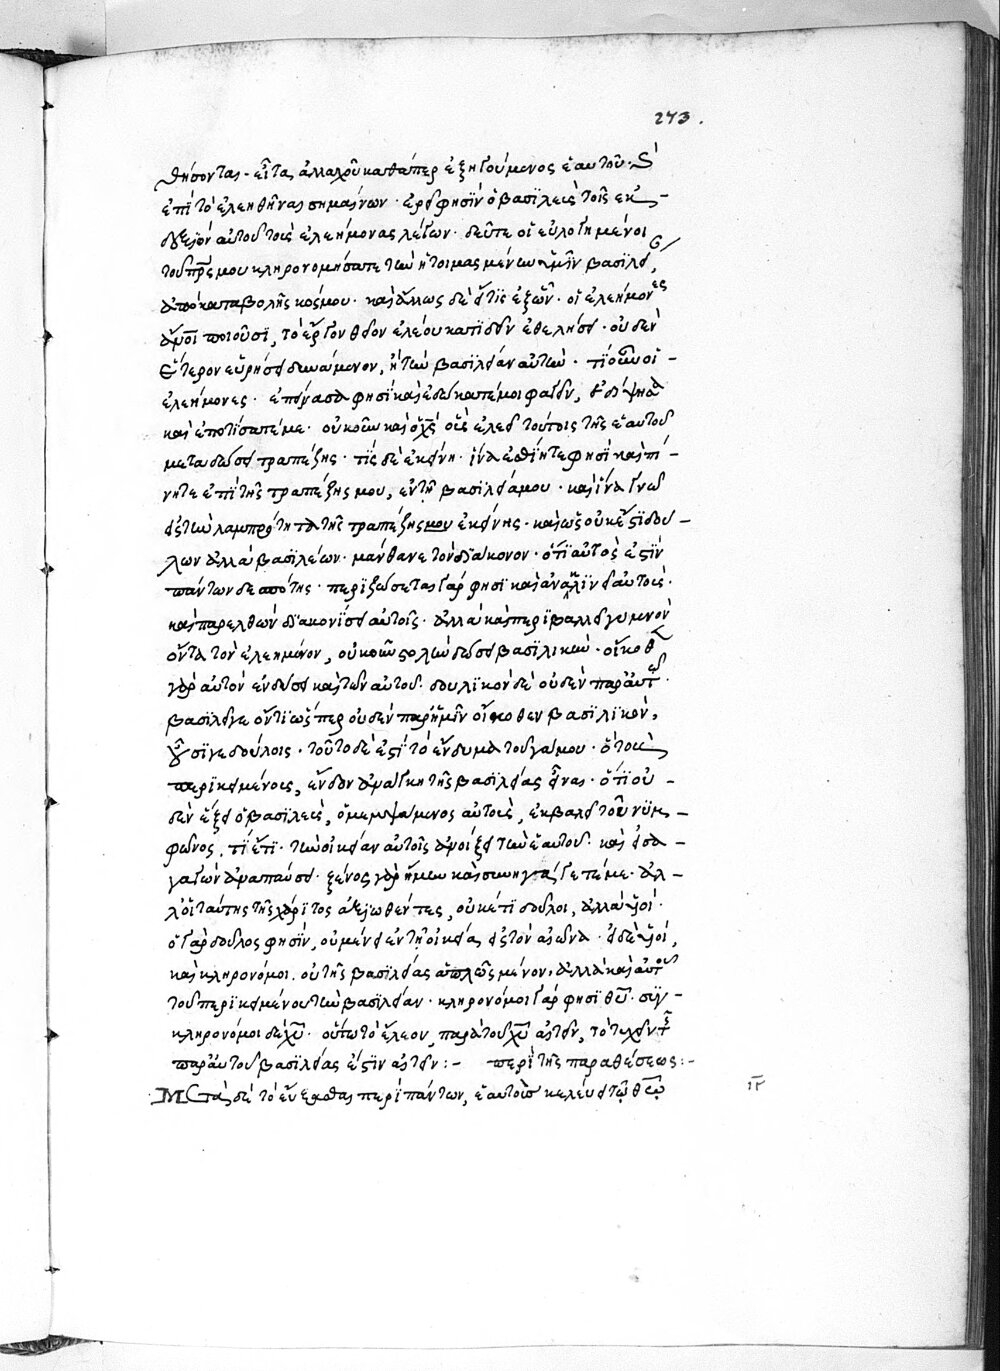 273.
θήσονται· εἶτα ἀλλαχοῦ καθάπερ ἐξηγούμενος ἑαυτοῦ· τί
ἐπὶ τὸ ἐλεηθῆναι σημαίνων· ἐρεῖ φησὶν ὁ βασιλεὺς τοῖς ἐκ
δεξιῶν αὐτοῦ τοὺς ἐλεήμονας λέγων· δεῦτε οἱ εὐλογημένοι
τοῦ πρς μου κληρονομήσατε τὴν ἡτοιμασμένην ὑμῖν βασιλεί
ἀπὸ καταβολῆς κόσμου· καὶ ἄλλως δὲ εἴ τις ἐξὸν· οἱ ἐλεήμονες
ποιοῦσι, τὸ ἔργον θεῖον ἐλέου κατιδεῖν ἐθελήσει· οὐδὲν
ἕτερον εὑρήσει δυνάμενον, ἢ τὴν βασιλείαν αὐτὴν· τί οὖν οἱ
ἐλεήμονες· ἐπείνασα φησὶ καὶ ἐδώκατέ μοι φαγεῖν, ἐδίψησα
καὶ ἐποτίσατέ με· οὐκοῦν καὶ ὁ χς οὓς ἐλεεῖ τούτοις τῆς ἑαυτοῦ
μεταδώσει τραπέζης· τίς δὲ ἐκείνη· ἵνα ἐσθίητε φησὶ καὶ πί
νητε ἐπὶ τῆς τραπέζης μου, ἐν τῇ βασιλείᾳ μου· καὶ ἵνα γνῶ
εἰς τὴν λαμπρότητα τῆς τραπέζης μου ἐκείνης· καὶ ὡς οὐκ ἔστι δού
λων ἀλλὰ βασιλέων· μάνθανε τὸν διάκονον· ὅτι αὐτὸς ἐστὶν
πάντων δεσπότης· περιζώσεται γάρ φησι καὶ ἀνακλινεῖ αὐτοὺς·
καὶ παρελθὼν διακονήσει αὐτοῖς· ἀλλὰ καὶ περιβάλλει γυμνὸν
ὄντα τὸν ἐλεήμονον, οὐκοῦν στολὴν δώσει βασιλικὴν· οἴκοθεν
γὰρ αὐτὸν ἐνδύσει καὶ τῶν αὐτοῦ· δουλικὸν δὲ οὐδὲν παρ' αὐτῷ
βασιλεῖ γε ὄντι ὥσπερ οὐδὲν παρ' ἡμῖν οἴκοθεν βασιλικὸν,
οὖσί γε δούλοις· τοῦτο δέ ἐστι τὸ ἔνδυμα τοῦ γάμου· ὃ τοὺς
περικειμένους, ἔνδον ἀνάγκη τῆς βασιλείας εἶναι· ὅτι οὐ
δὲν ἕξει ὁ βασιλεὺς, ὃ μεμψάμενος αὐτοὺς, ἐκβαλεῖ τοῦ νυμ
φῶνος. τί ἔτι· τὴν οἰκείαν αὐτοῖς ἀνοίξει τὴν ἑαυτοῦ· καὶ εἰσα
γαγὼν ἀναπαύσει· ξένος γὰρ ἤμην καὶ συνηγάγετέ με· ἀλ
λ' οἱ ταύτης τῆς χάριτος ἀξιωθέντες, οὐκέτι δοῦλοι, ἀλλὰ υἱοί·
ὁ γὰρ δοῦλος φησὶν, οὐ μένει ἐν τῇ οἰκίᾳ εἰς τὸν αἰῶνα· εἰ δὲ υἱοί,
καὶ κληρονόμοι. οὐ τῆς βασιλείας ἁπλῶς μένον, ἀλλὰ καὶ αὐτοῦ
τοῦ περικειμένου τὴν βασιλείαν· κληρονόμοι γάρ φησι θυ· συγ
κληρονόμοι δὲ χυ· οὕτω τὸ ἔλεον, παρὰ τοῦ χυ αἰτεῖν, τὸ τυχεῖν τῆς
παρ' αὐτοῦ βασιλείας ἐστὶν αἰτεῖν:– περὶ τῆς παραθέσεως:–
ιγ
Μετὰ δὲ τὸ εὔξασθαι περὶ πάντων, ἑαυτοὺς κελεύει τῷ θῷ